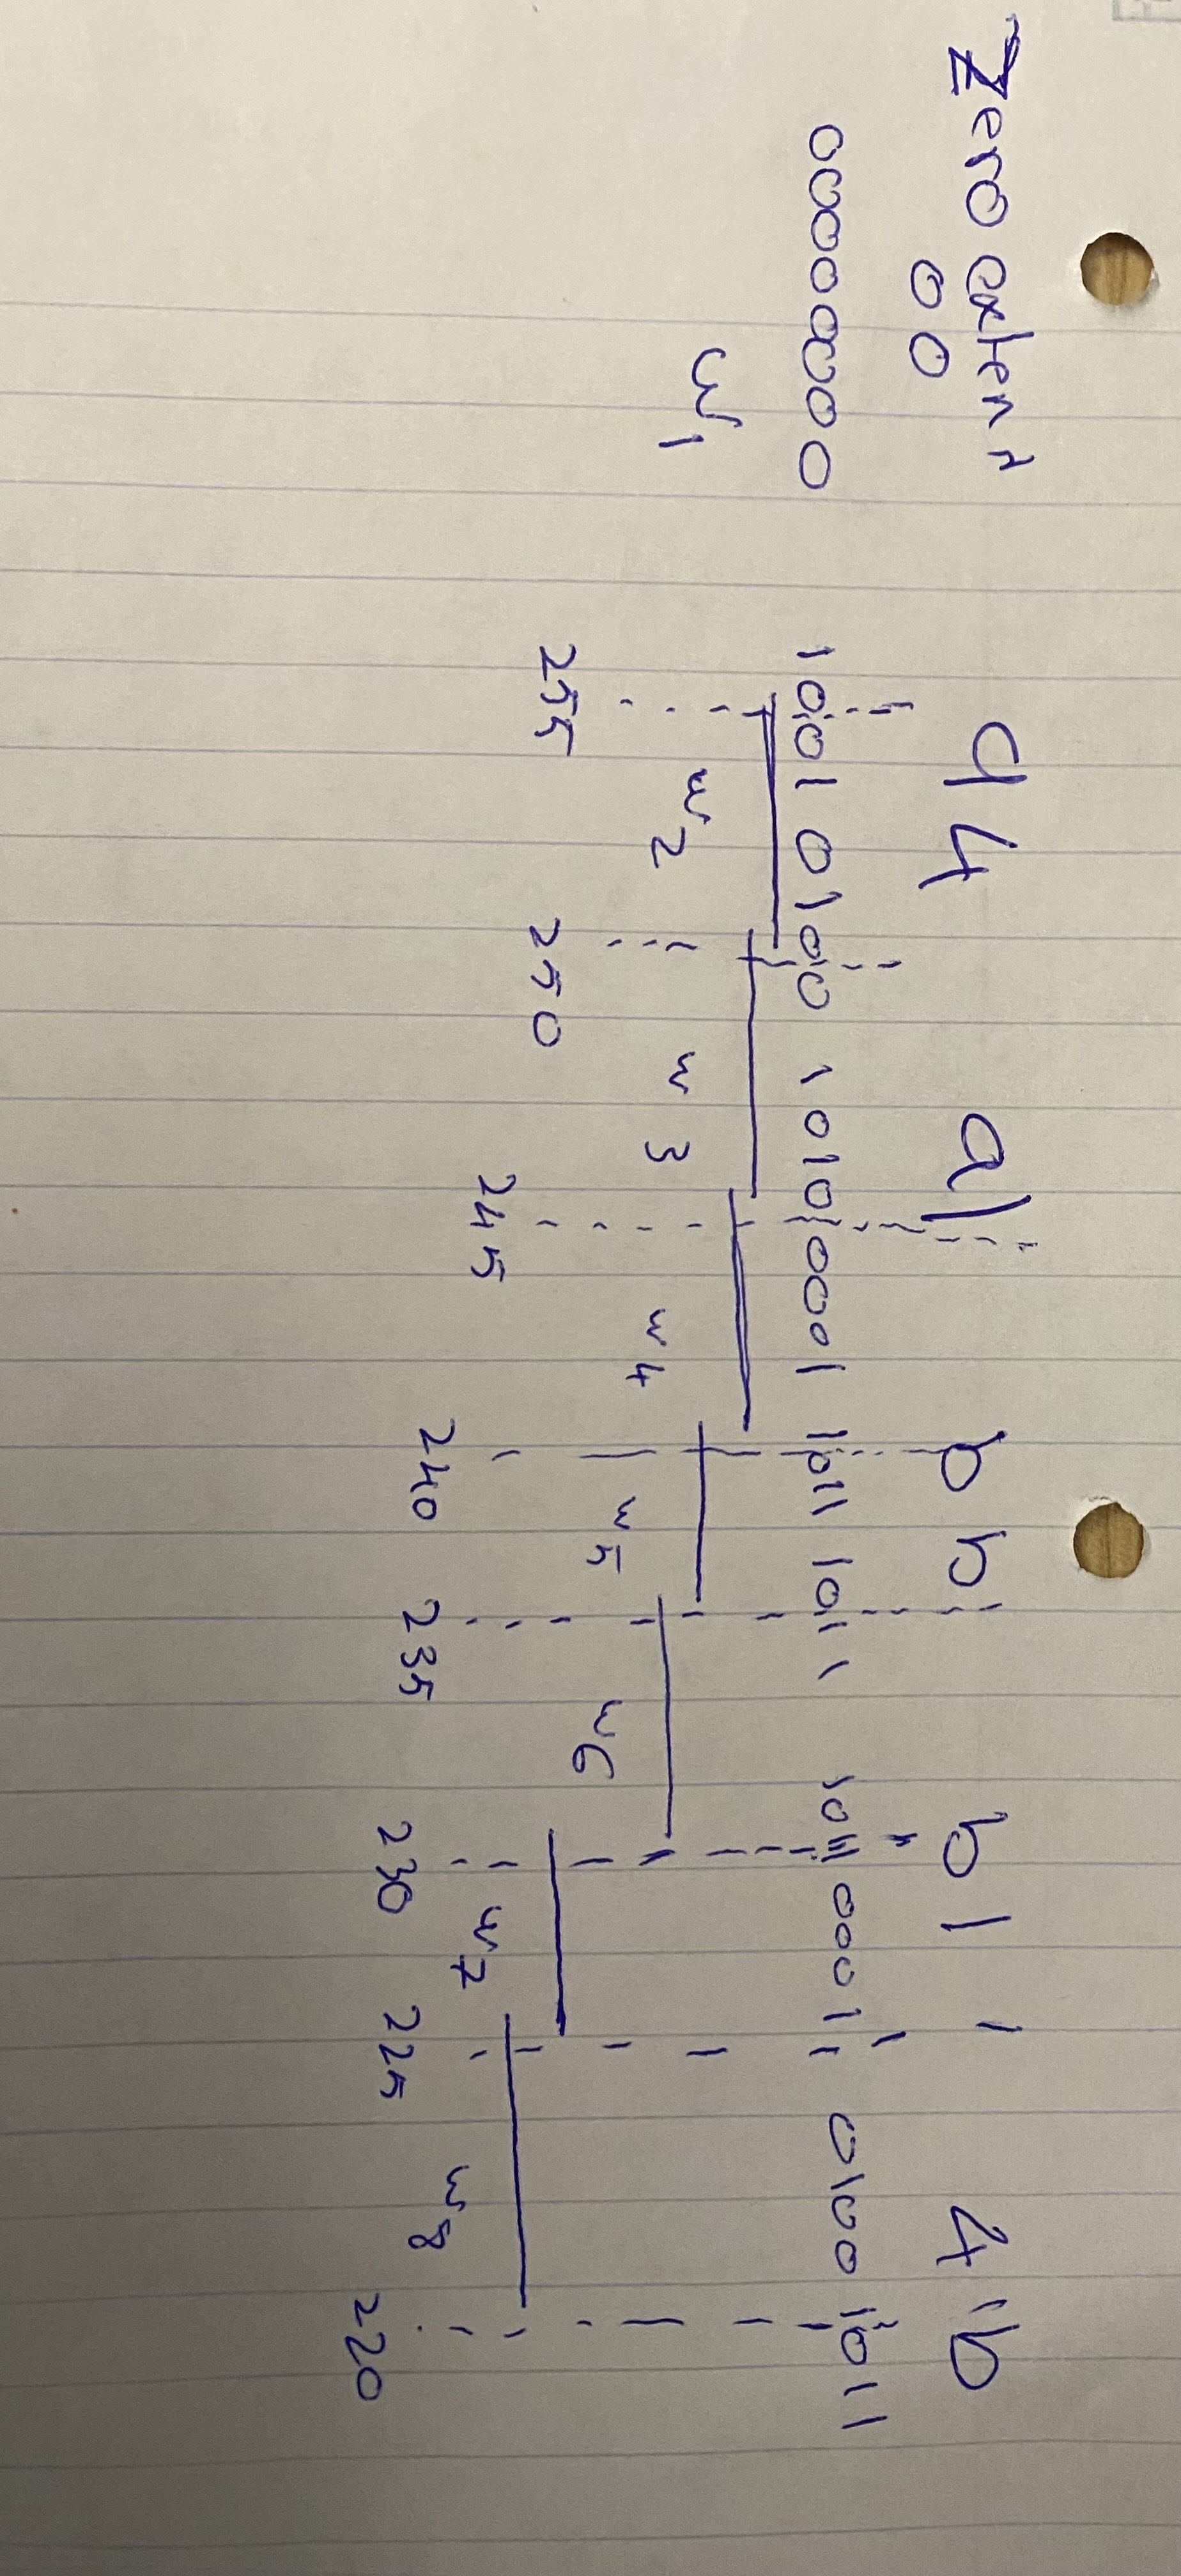 Zero extend
00 94 a1 bb b1 1 4b
00000000 1001 0100 1010 0001 1011 1011 1011 0001 0100 1011
w1 w2 w3 w4 w5 w6 w7 w8
255 250 245 240 235 230 225 220